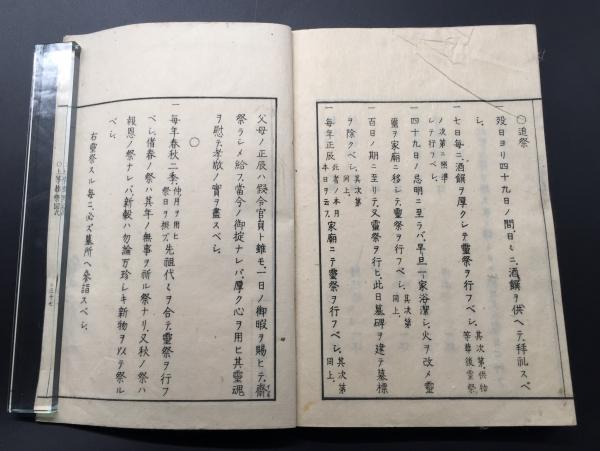 〇追祭
一歿日ヨリ四十九日ノ間日ヒニ酒饌ヲ供ヘテ拜礼スベ
シ 其次第供物
等葬後霊祭
一七日毎ニ酒饌ヲ厚クシテ霊祭ヲ行フベシ
ノ次第ニ照準
シテ行フベシ
一四十九日ノ忌明ニ至ラバ早旦一家浴潔シ火ヲ改メ霊
璽ヲ家廟ニ移シテ霊祭ヲ行フベシ 其次第
同上
一百日ノ期ニ至リテ又霊祭ヲ行ヒ此日墓碑ヲ建テ墓標
ヲ除クベシ 其次第
同上
一毎年正辰 死者ノ本月
本日ヲ云フ 家廟ニテ霊祭ヲ行フベシ 其次第
同上
父母ノ正辰ハ假令官員ト雖モ一日ノ御暇ヲ賜ヒテ齋
祭ラシメ給フ當今ノ御掟ナレバ厚ク心ヲ用ヒ其霊魂
ヲ慰テ孝敬ノ實ヲ盡スベシ
〇
一毎年春秋二季 仲月ヲ用ヒ
祭日ヲ撰ブ 先祖代ヒヲ合テ霊祭ヲ行フ
ベシ偖春ノ祭ハ其年ノ無事ヲ祈ル祭ナリ又秋ノ祭ハ
報恩ノ祭ナレバ新穀ハ勿論万珍レキ新物ヲ以テ祭ル
ベシ
右霊祭スル毎ニ必ズ墓所ヘ參詣スベシ